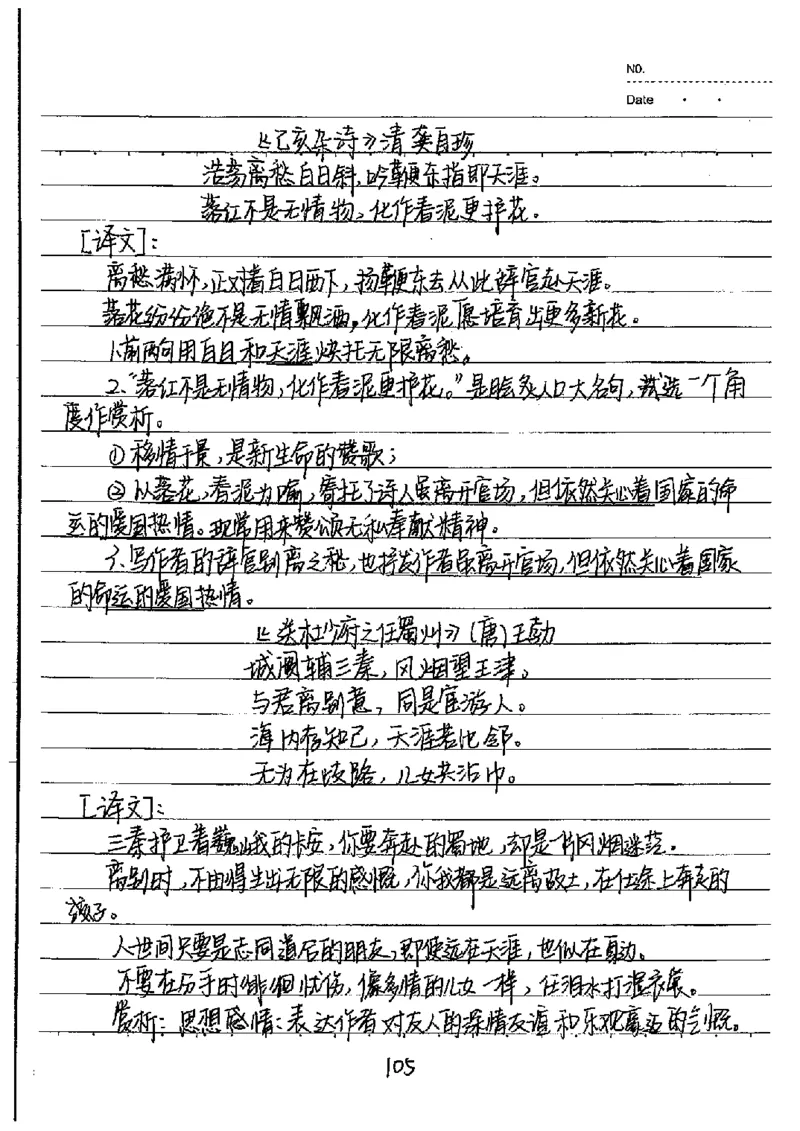 NO.
Date
《己亥杂诗》清 龚自珍
浩荡离愁白日斜,吟鞭东指即天涯。
落红不是无情物,化作春泥更护花。
[译文]:
离愁满怀,正对着白日西下,扬鞭东去从此辞官赴天涯。
落花纷纷绝不是无情飘洒,化作春泥愿培育出更多新花。
1.前两句用白日和天涯烘托无限离愁。
2.“落红不是无情物,化作春泥更护花。”是脍炙人口大名句,试选一个角
度作赏析。
①移情于景,是新生命的赞歌;
②以落花,春泥为喻,寄托了诗人虽离开官场,但依然关心着国家的命
运的爱国热情。现常用来赞颂无私奉献精神。
3.写作者的辞官别离之愁,也抒发作者虽离开官场,但依然关心着国家
的命运的爱国热情。
《送杜少府之任蜀州》(唐)王勃
城阙辅三秦,风烟望五津。
与君离别意,同是宦游人。
海内存知己,天涯若比邻。
无为在歧路,儿女共沾巾。
[译文]:
三秦护卫着巍峨的长安,你要奔赴的蜀地,却是一片风烟迷茫。
离别时,不由得生出无限的感慨,你我都是远离故土,在仕途上奔走的
孩子。
人世间只要是志同道合的朋友,即使远在天涯,也似在身边。
不要在分手时徘徊忧伤,像多情的儿女一样,任泪水打湿衣裳。
赏析:思想感情:表达作者对友人的深情友谊和乐观豪迈的气慨。
105